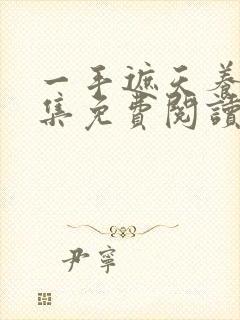 一手遮天養
集免費閱讀
尹寧